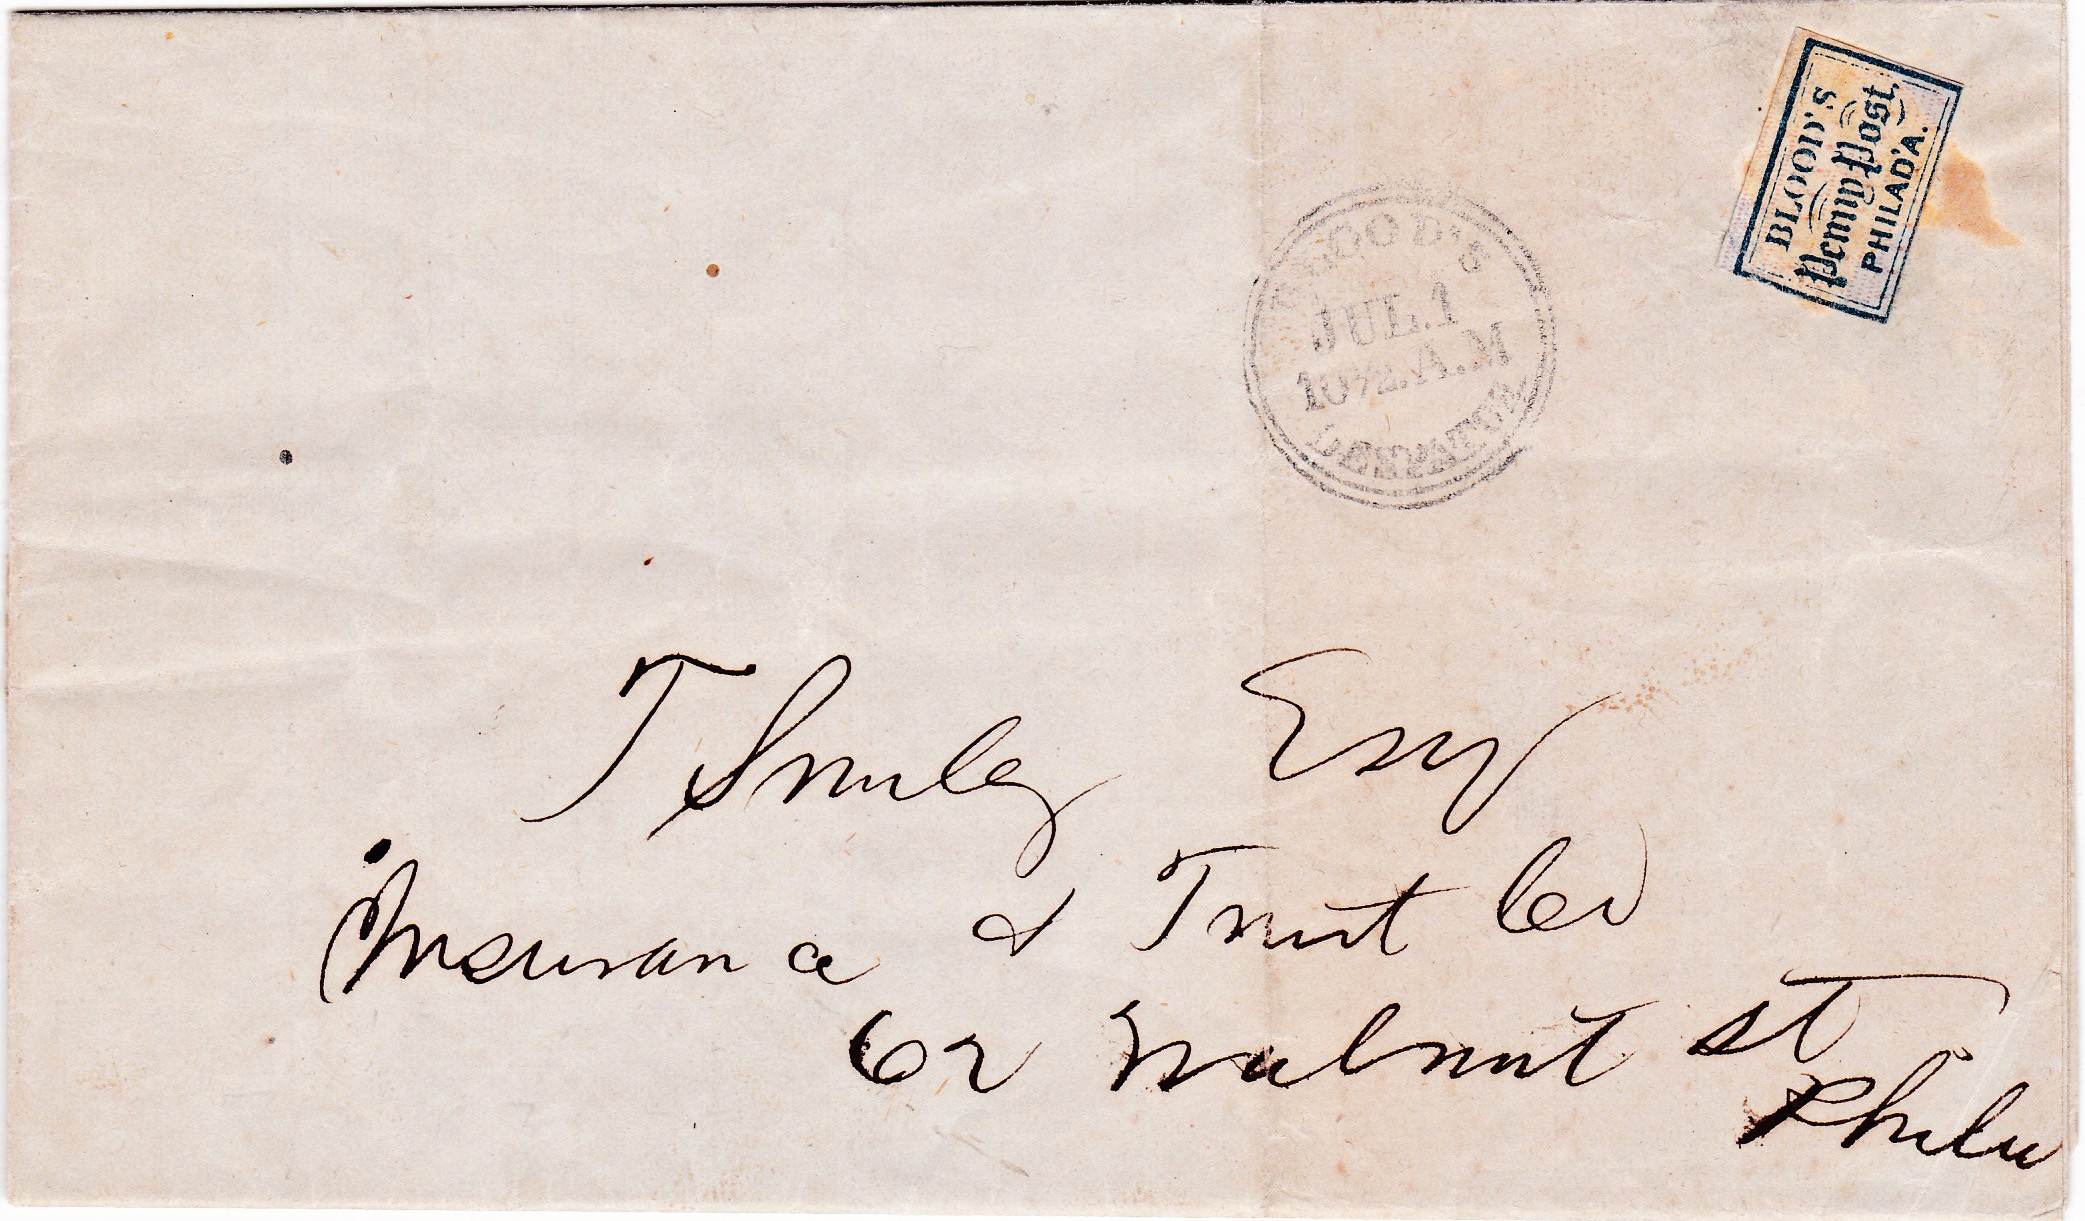 BLOOD'S
Penny Post,
PHILAD'A.
BLOOD'S
JUL. 1
10½.A.M
DESPATCH
T Smiley Esq
Insurance & Trust Co
62 Walnut st
Phila